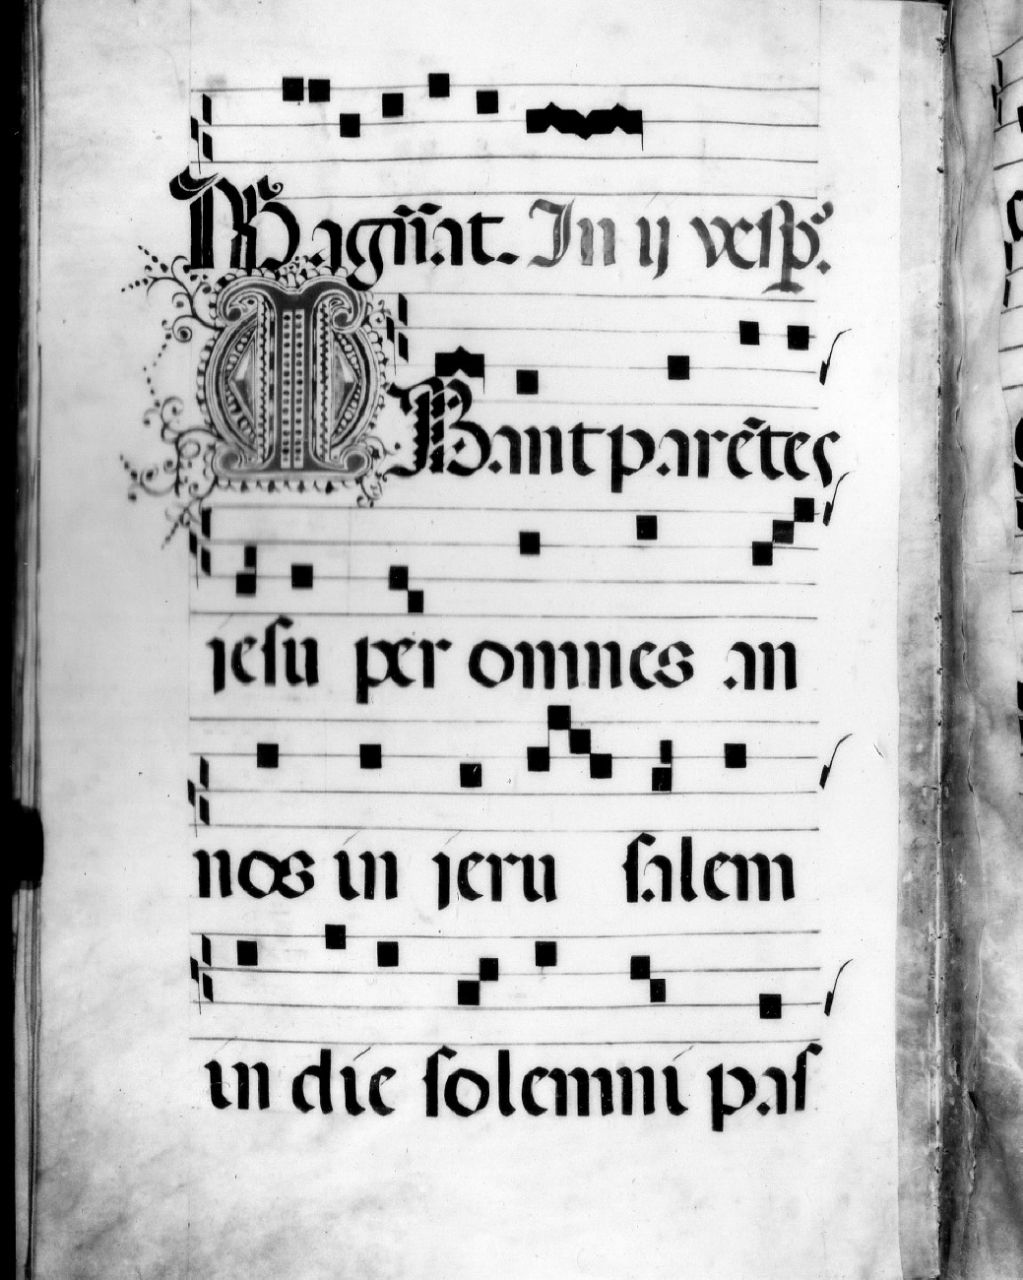 Magn̄īat. In ij vesp̄.
IBant parētes
jesu per omnes an
nos in jeru salem
in die solemni pas